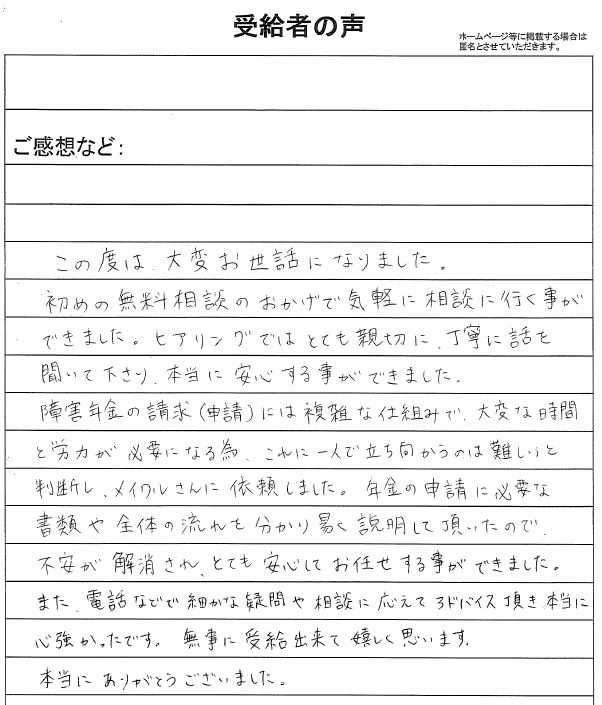 受給者の声
ホームページ等に掲載する場合は
匿名とさせていただきます。
ご感想など：
この度は、大変お世話になりました。
初めの無料相談のおかげで気軽に相談に行く事が
できました。ヒアリングではとても親切に、丁寧に話を
聞いて下さり、本当に安心する事ができました。
障害年金の請求（申請）には複雑な仕組みで、大変な時間
と労力が必要になる為、これに一人で立ち向かうのは難しいと
判断し、メイクルさんに依頼しました。年金の申請に必要な
書類や全体の流れを分かり易く説明して頂いたので、
不安が解消され、とても安心してお任せする事ができました。
また、電話などで細かな疑問や相談に応えてアドバイス頂き、本当に
心強かったです。無事に受給出来て嬉しく思います。
本当にありがとうございました。